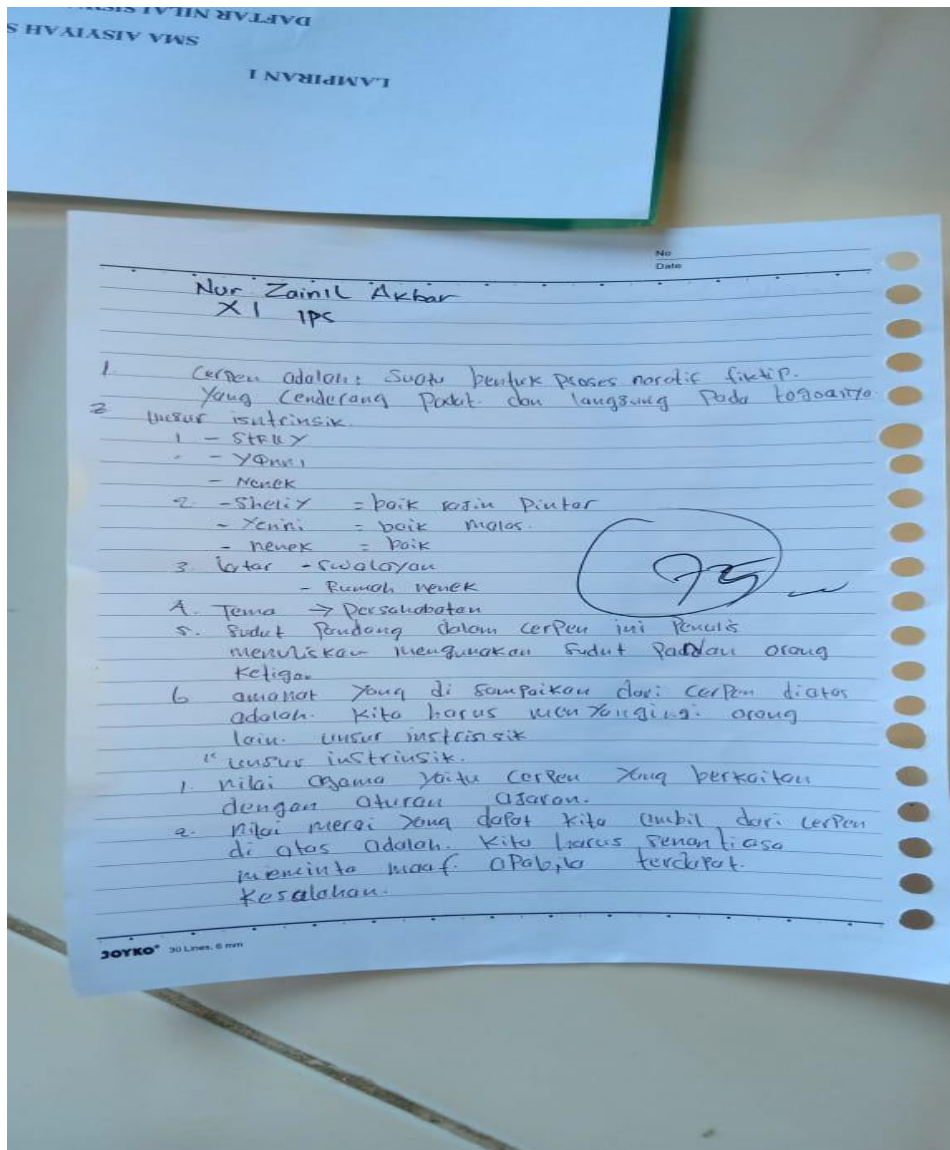 LAMPIRAN 1
SMA AISYIYAH S
DAFTAR NILAI SISW
No
Date
Nur Zainil Akbar
XI IPS
1 Cerpen adalah: Suatu bentuk Proses naratif fiktip.
Yang Cenderang Padat dan langsung Pada
2 unsur isntrinsik.
1 - StRllY
- Yenni
- Nenek
2. - Shelly = baik rajin Pintar
- Yenni = baik malas.
- nenek = baik
3. latar - Swalayan
- Rumah nenek
4. Tema → Persahabatan
5. Sudut Pandang dalam cerPen ini Penulis
menuliskan mengunakan Sudut Pandan orang
Ketiga
6 amanat Yang di Sampaikan dari cerPen diatas
adalah. Kita harus menYangingi orang
lain. unsur instrinsik
" unsur instriusik.
1. nilai agama Yaitu CerPen Yang berkaitan
dengan aturan ajaran.
2. nilai meral Yang dapat Kita ambil dari cerPen
di atas adalah. Kita harus senantiasa
meminta maaf. aPabila terdapat.
Kesalahan.
75
JOYKO® 30 Lines, 6 mm